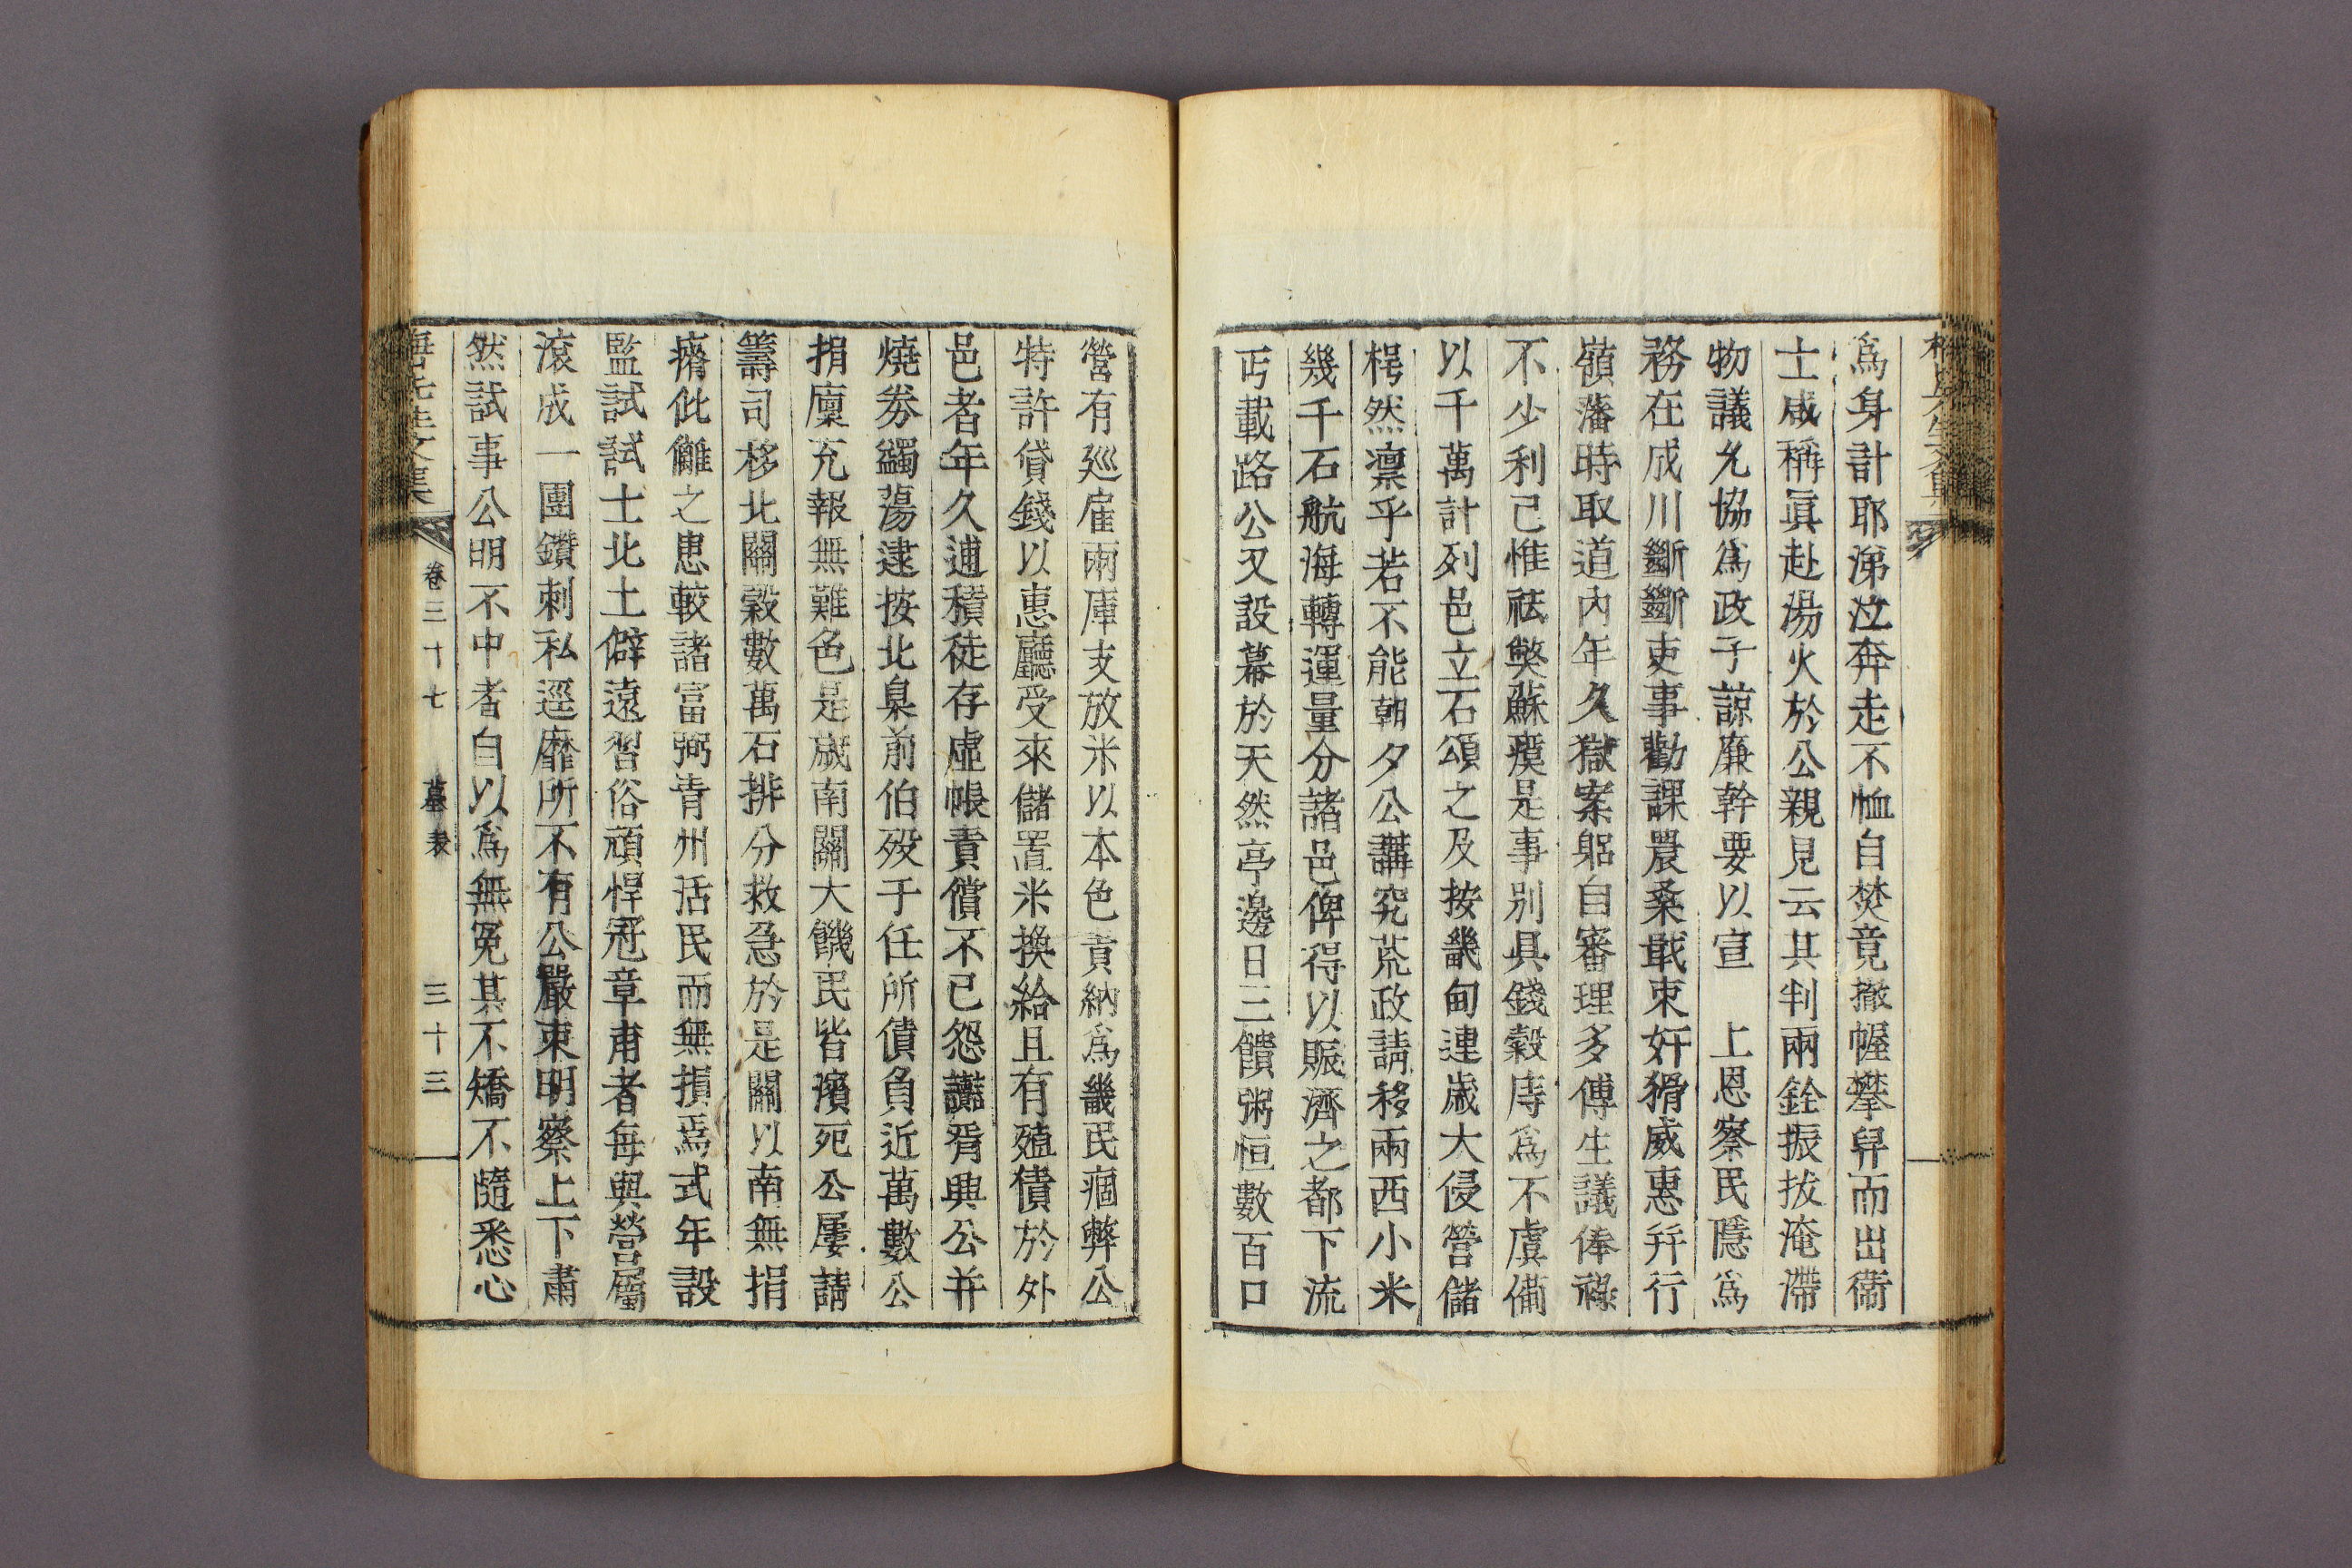 爲身計耶涕泣奔走不恤自焚竟撤幄攀舁而出衞
士咸稱眞赴湯火於公親見云其判兩銓振拔淹滯
物議允協爲政子諒廉幹要以宣 上恩察民隱爲
務在成川斷斷吏事勸課農桑戢束奸猾威惠幷行
嶺藩時取道內年久獄案躬自審理多傅生議俸祿
不少利己惟祛獘蘇瘼是事別具錢糓庤爲不虞備
以千萬計列邑立石頌之及按畿甸連歲大侵營儲
枵然凛乎若不能朝夕公講究荒政請移兩西小米
幾千石航海轉運量分諸邑俾得以賑濟之都下流
丐載路公又設幕於天然亭邊日三饋粥恒數百口
營有廵雇兩庫支放米以本色責納爲畿民痼弊公
特許貸錢以惠廳受來儲置米換給且有殖債於外
邑者年久逋積徒存虛帳責償不已怨讟胥興公并
燒券蠲蕩逮按北臬前伯歿于任所債負近萬數公
捐廩充報無難色是歲南關大饑民皆濱死公屢請
籌司移北關穀數萬石排分救急於是關以南無捐
瘠仳儺之患較諸富弼青州活民而無損焉式年設
監試試士北土僻遠習俗頑悍冠章甫者每與營屬
滾成一團鑽刺私逕靡所不有公嚴束明察上下肅
然試事公明不中者自以爲無寃其不矯不隨悉心
卷三十七 墓表 三十三